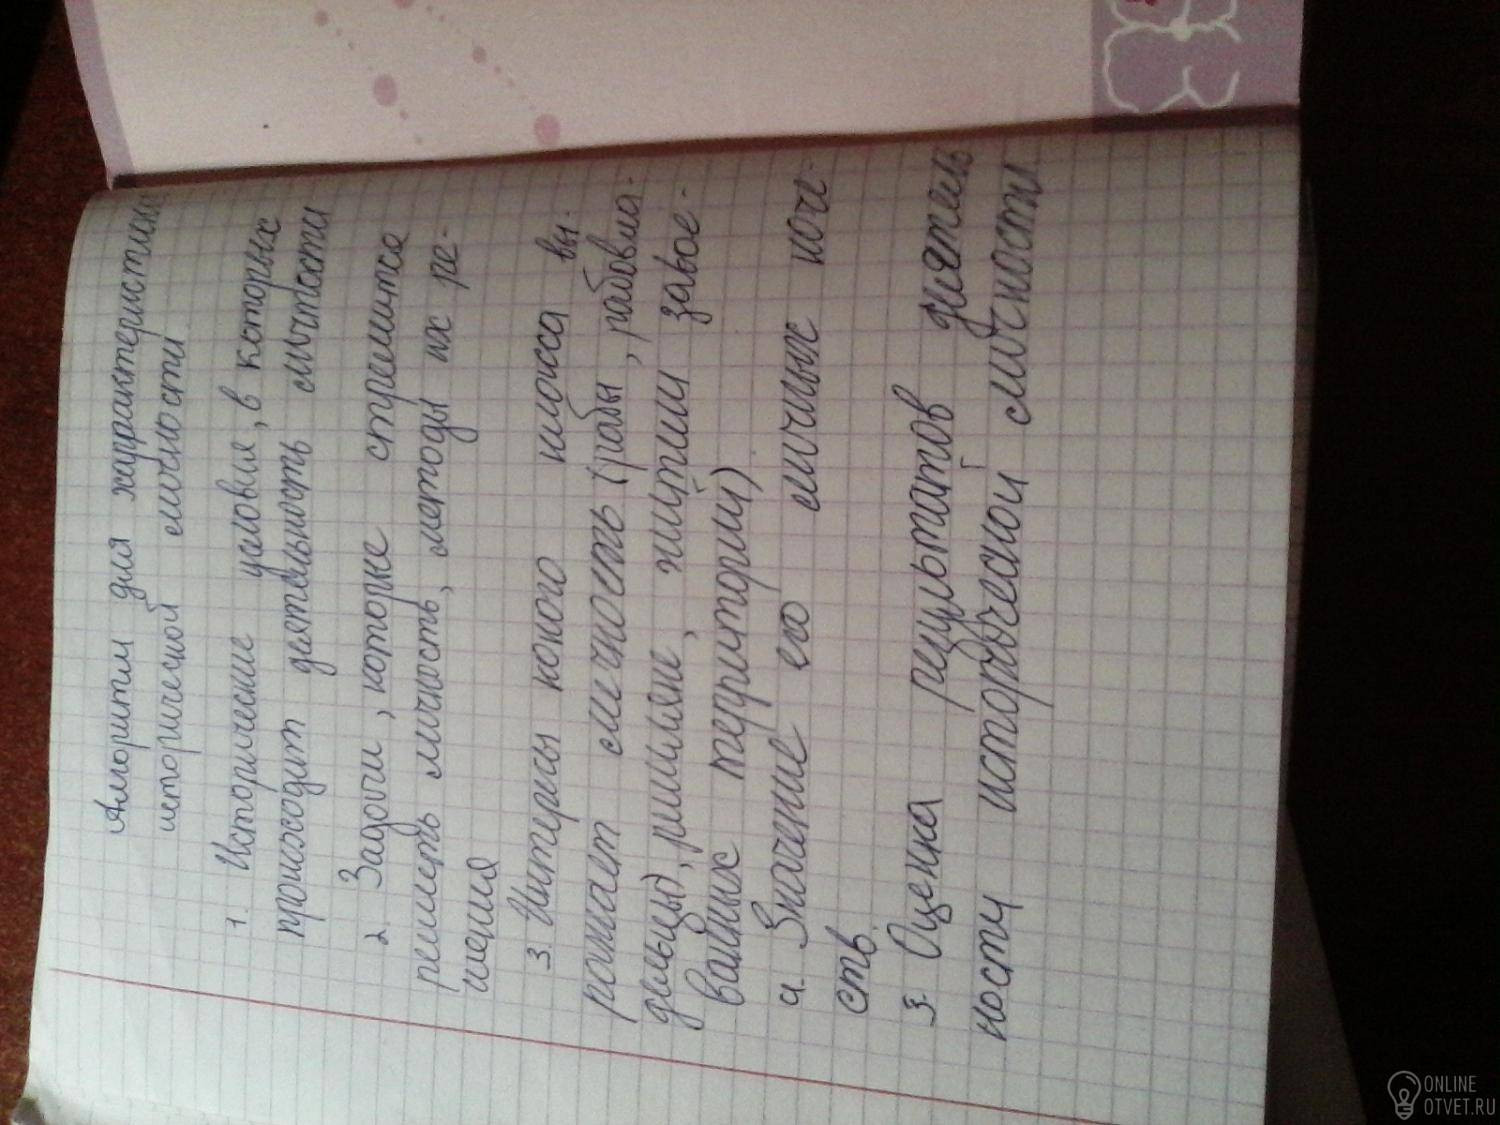 Алгоритм для характеристики
исторической личности
1. Исторические условия, в которых
происходит деятельность личности
2. Задачи, которые стремится
решить личность, методы их ре-
шения
3. Интересы какого класса вы-
ражает личность (рабы, рабовла-
дельцы), римляне, жители завое-
ванных территорий)
4. Значение его личных каче-
ств.
3. Оценка результатов деятель
ности исторической личности
ONLINE
OTVET.RU